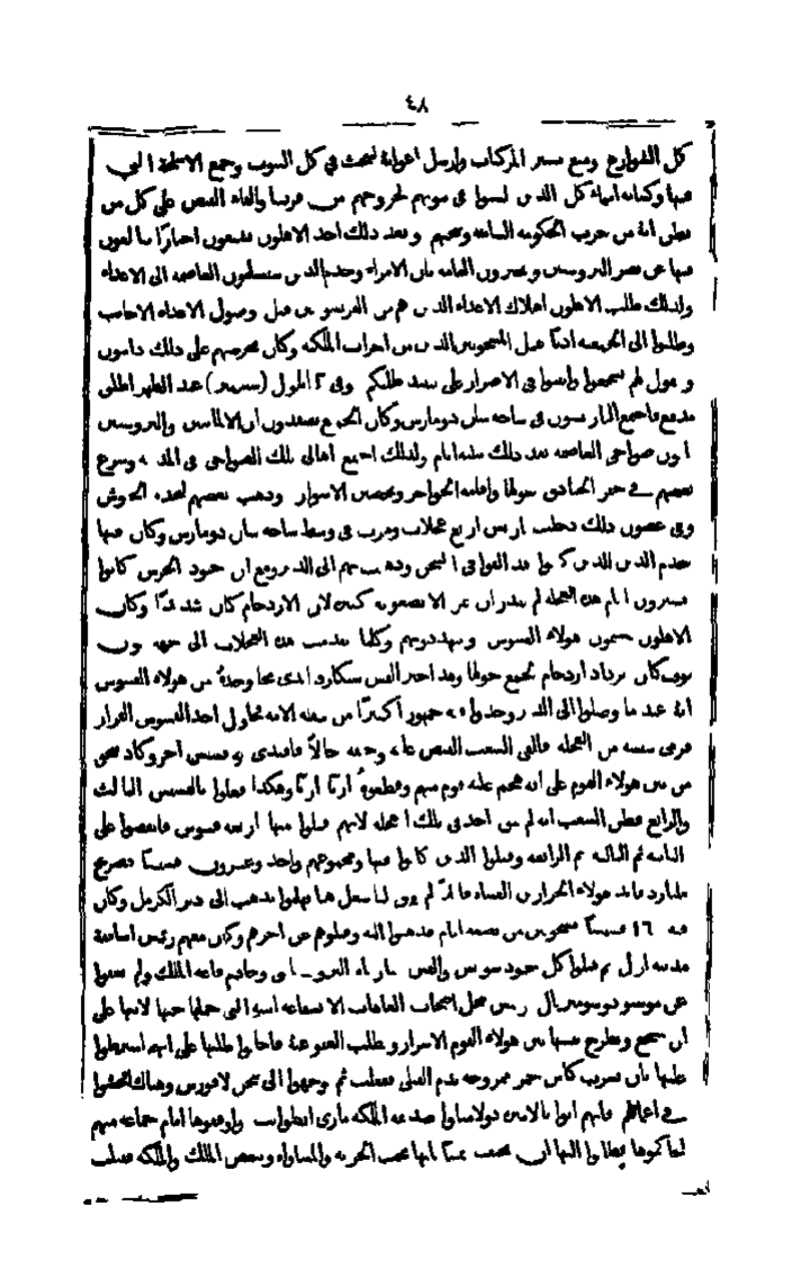 ٤٨
كل الشوارع ومنع مسير المركبات وارسل اعوانه لتبحث في كل البيوت وجمع الاسلحة التي
فيها وكتابة اسماء كل الذين ليسوا في بيوتهم لخروجهم من فرنسا والقاء القبض على كل من
يظن انه من حزب الحكومة السابقة وسجنهم وبعد ذلك احد الاهلون يشيعون اخبارًا يبالغون
فيها عن نصر البروسيين ويخبرون العامة بان الامراء وخدم الدين سيسلمون العاصمة الى الاعداء
ولذلك طلب الاهلون اهلاك الاعداء الذين هم من الفرنسويين قبل وصول الاعداء الاجانب
وطلبوا الى الجمعية ايضًا قتل المسجونين الذين من احزاب الملكة وكان يحرضهم على ذلك دانتون
ويقول لهم تشجعوا واثبتوا في الاصرار على تنفيذ طلبكم وفي ٢ ايلول (سبتمبر) عند الظهر اطلق
مدفع فاجتمع الباريسيون في ساحة سان دومارس وكان الجميع يعتقدون ان الالمانيين والبروسيين
ياتون ضواحي العاصمة بعد ذلك بثلاثة ايام ولذلك اجتمع اهالي تلك الضواحي في المدينة وشرع
بعضهم في حفر الخنادق حولها واقامة الحواجز وتحصين الاسوار وذهب بعضهم لنجدة الجيوش
وفي غضون ذلك دخلت باريس اربع عجلات ومرت في وسط ساحة سان دومارس وكان فيها
خدم الدين الذين كانوا قد القوا في السجن وذهب بهم الى الدير ومع ان جنود الحرس كانوا
يسيرون امام هذه العجلة لم يقدر ان تمر الا بصعوبة كبيرة لان الازدحام كان شديدًا وكان
الاهلون يشتمون هولاء القسوس ويهددونهم وكلما تقدمت هذه العجلات الى جهة
كان يزداد ازدحام الجميع حولها وقد اخبر القس سيكارد الذي نجا وحده من هولاء القسوس
انه عند ما وصلوا الى الدير وجدوا فيه جمهورًا كبيرًا من سفلة الامة فحاول احد القسوس الفرار
فرمى بنفسه من العجلة فالقى الشعب القبض عليه وذبحه حالاً فاقتدى به قسيس اخر وكاد ينجو
من بين هولاء القوم على انه هجم عليه قوم منهم وقطعوه اربًا اربًا وهكذا فعلوا بالقسيس الثالث
والرابع فظن الشعب انه لم يبق احد في تلك العجلة لانهم قتلوا منها اربعة قسوس فانقضوا على
الثانية ثم الثالثة ثم الرابعة وقتلوا الذين كانوا فيها ومجموعهم واحد وعشرون قسيسًا فصرخ
ميلارد قائد هولاء الجزارين القساة قائلاً لم يبق لنا شغل هنا فهلموا نذهب الى دير الكرمل وكان
فيه ١٦ قسيسًا مسجونين من بضعة ايام فذهبوا اليه وقتلوهم عن اخرهم وكان معهم رئيس اساقفة
مدينة ارل ثم قتلوا كل جنود سويس والقس وخادم قاعة الملك ولم يعفوا
عن موسيو دوسومبريال رئيس محل اصحاب العاهات الا بشفاعة ابنته التي حملها حبها لابيها على
ان تتشجع وتطرح نفسها بين هولاء القوم الاشرار وتطلب العفو عنه فاجابوا طلبها على انهم اشترطوا
عليها بان تشرب كاس خمر ممزوجة بدم القتلى ففعلت ثم توجهوا الى سجن لافورس وهناك اتحفوا
في اعمالهم فانهم اتوا بالاميرة دولامبال صديقة الملكة ماري انطوانيت واوقفوها امام جماعة منهم
ليحاكموها فطلبوا اليها ان تحلف يمينًا انها تحب الحرية والمساواة وتبغض الملك والملكة فقبلت